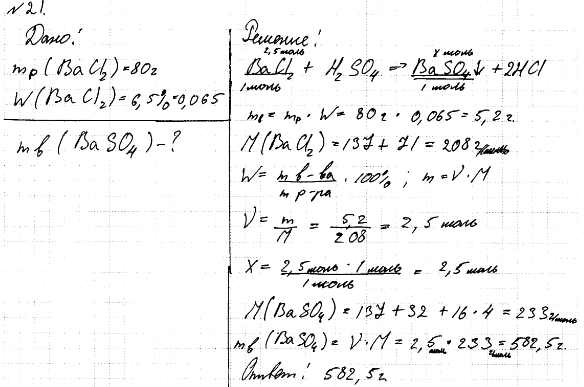 №21.
Дано:
mр (BaCl2) = 80г
W (BaCl2) = 6,5% = 0,065
mв (BaSO4) - ?
Решение:
2,5 моль x моль
BaCl2 + H2SO4 → BaSO4↓ + 2HCl
1 моль 1 моль
mв = mр · W = 80г · 0,065 = 5,2г.
M (BaCl2) = 137 + 71 = 208 г/моль
W = m в-ва / m р-ра · 100% ; m = V · M
V = m/M = 5,2/208 = 2,5 моль
X = 2,5 моль · 1 моль / 1 моль = 2,5 моль
M (BaSO4) = 137 + 32 + 16 · 4 = 233 г/моль
mв (BaSO4) = V · M = 2,5 моль · 233 г/моль = 582,5г.
Ответ: 582,5г